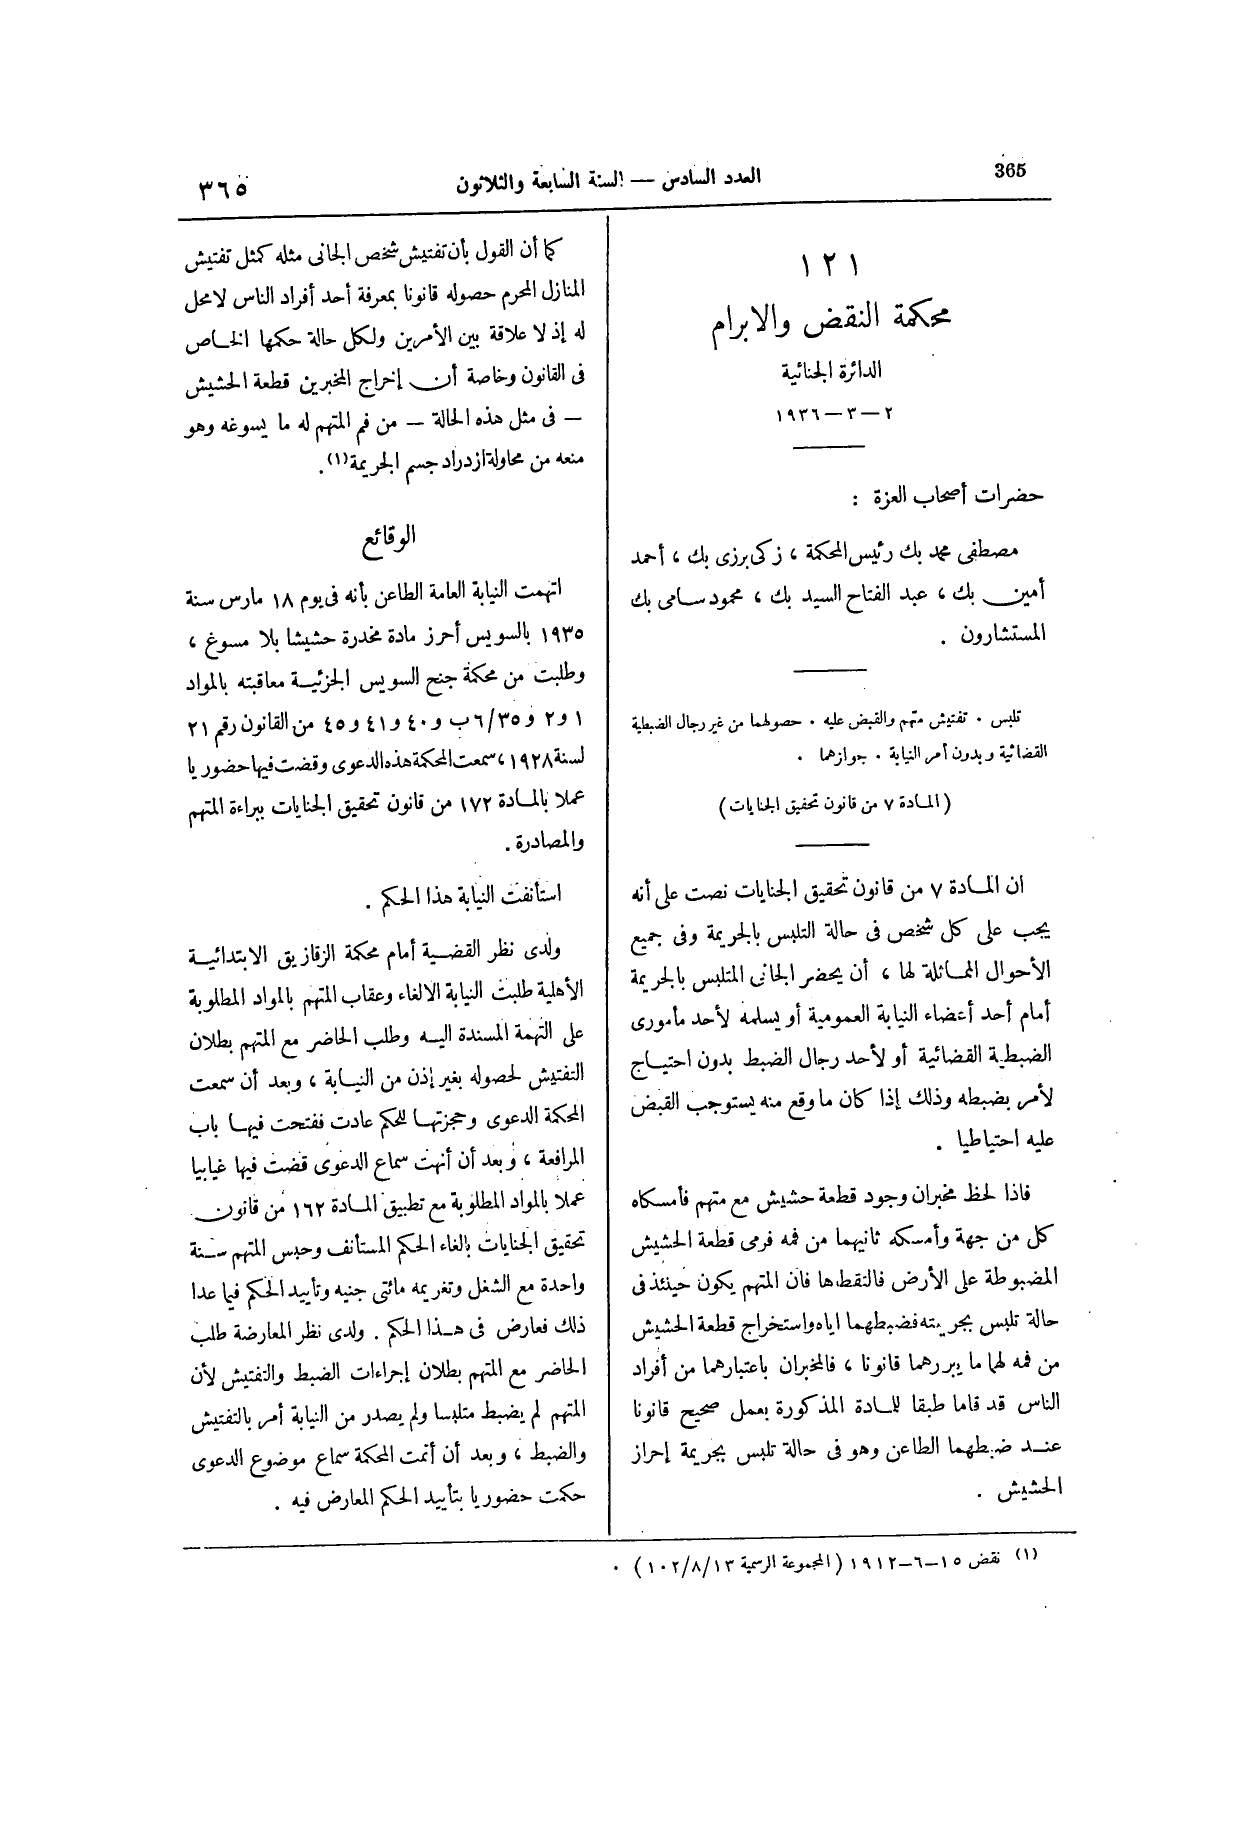 365
العدد السادس — السنة السابعة والثلاثون
٣٦٥
١٢١
محكمة النقض والابرام
الدائرة الجنائية
٢ – ٣ – ١٩٣٦
حضرات أصحاب العزة :
مصطفى محمد بك رئيس المحكمة ، زكى برزى بك ، أحمد
أمين بك ، عبد الفتاح السيد بك ، محمود سامى بك
المستشارون .
تلبس . تفتيش متهم والقبض عليه . حصولهما من غير رجال الضبطية
القضائية وبدون أمر النيابة . جوازهما .
( المادة ٧ من قانون تحقيق الجنايات )
ان المادة ٧ من قانون تحقيق الجنايات نصت على أنه
يجب على كل شخص فى حالة التلبس بالجريمة وفى جميع
الأحوال المماثلة لها ، أن يحضر الجانى المتلبس بالجريمة
أمام أحد أعضاء النيابة العمومية أو يسلمه لأحد مأمورى
الضبطية القضائية أو لأحد رجال الضبط بدون احتياج
لأمر بضبطه وذلك إذا كان ما وقع منه يستوجب القبض
عليه احتياطيا .
فاذا لحظ مخبران وجود قطعة حشيش مع متهم فأمسكاه
كل من جهة وأمسكه ثانيهما من فمه فرمى قطعة الحشيش
المضبوطة على الأرض فالتقطاها فان المتهم يكون حينئذ فى
حالة تلبس بجريمته فضبطهما اياه واستخراج قطعة الحشيش
من فمه لهما ما يبررهما قانونا ، فالمخبران باعتبارهما من أفراد
الناس قد قاما طبقا للمادة المذكورة بعمل صحيح قانونا
عند ضبطهما الطاعن وهو فى حالة تلبس بجريمة إحراز
الحشيش .
كما أن القول بأن تفتيش شخص الجانى مثله كمثل تفتيش
المنازل المحرم حصوله قانونا بمعرفة أحد أفراد الناس لا محل
له إذ لا علاقة بين الأمرين ولكل حالة حكمها الخاص
فى القانون وخاصة أن إخراج المخبرين قطعة الحشيش
– فى مثل هذه الحالة – من فم المتهم له ما يسوغه وهو
منعه من محاولة ازدراد جسم الجريمة (١) .
الوقائع
اتهمت النيابة العامة الطاعن بأنه فى يوم ١٨ مارس سنة
١٩٣٥ بالسويس أحرز مادة مخدرة حشيشا بلا مسوغ ،
وطلبت من محكمة جنح السويس الجزئية معاقبته بالمواد
١ و٢ و٦/٣٥ب و٤٠ و٤١ و٤٥ من القانون رقم ٢١
لسنة ١٩٢٨ ، سمعت المحكمة هذه الدعوى وقضت فيها حضوريا
عملا بالمادة ١٧٢ من قانون تحقيق الجنايات ببراءة المتهم
والمصادرة .
استأنفت النيابة هذا الحكم .
ولدى نظر القضية أمام محكمة الزقازيق الابتدائية
الأهلية طلبت النيابة الالغاء وعقاب المتهم بالمواد المطلوبة
على التهمة المسندة اليه وطلب الحاضر مع المتهم بطلان
التفتيش لحصوله بغير إذن من النيابة ، وبعد أن سمعت
المحكمة الدعوى وحجزتها للحكم عادت ففتحت فيها باب
المرافعة ، وبعد أن أنهت سماع الدعوى قضت فيها غيابيا
عملا بالمواد المطلوبة مع تطبيق المادة ١٦٢ من قانون
تحقيق الجنايات بالغاء الحكم المستأنف وحبس المتهم سنة
واحدة مع الشغل وتغريمه مائتى جنيه وتأييد الحكم فيما عدا
ذلك فعارض فى هذا الحكم . ولدى نظر المعارضة طلب
الحاضر مع المتهم بطلان إجراءات الضبط والتفتيش لأن
المتهم لم يضبط متلبسا ولم يصدر من النيابة أمر بالتفتيش
والضبط ، وبعد أن أتمت المحكمة سماع موضوع الدعوى
حكمت حضوريا بتأييد الحكم المعارض فيه .
(١) نقض ١٥–٦–١٩١٢ ( المجموعة الرسمية ١٠٢/٨/١٣ ) .